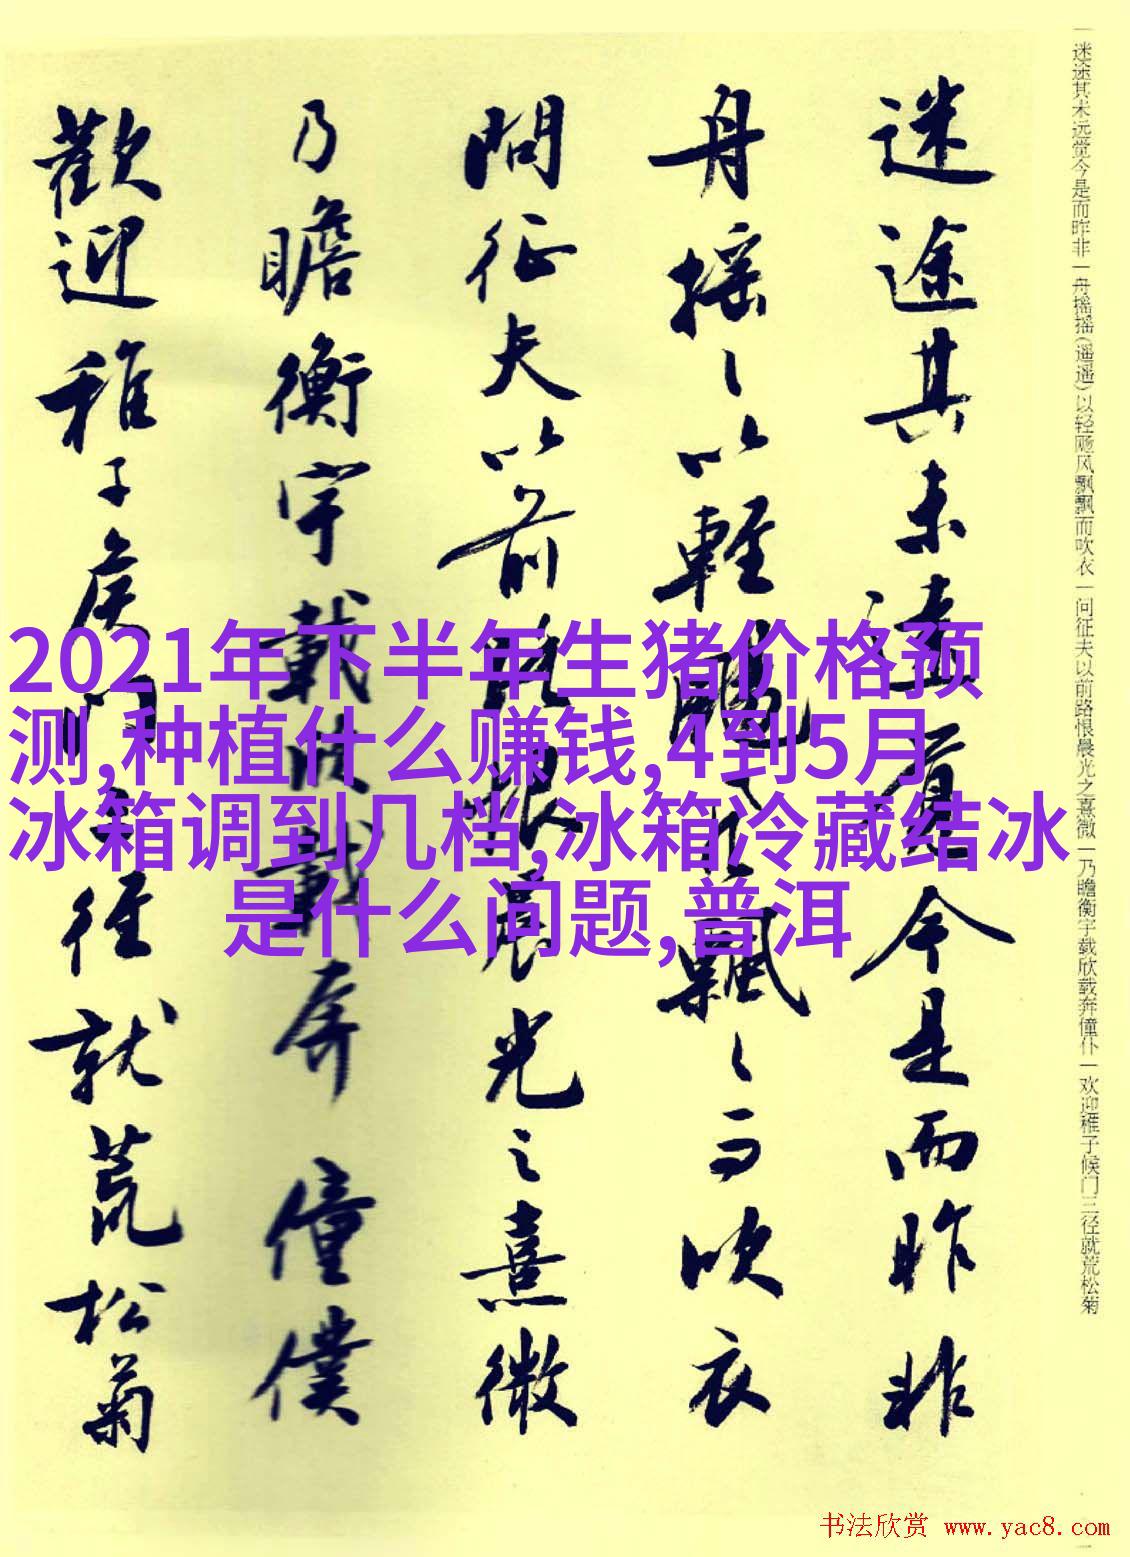 迷途其未远觉今是而昨非
舟摇〻以轻飏风飘〻而吹衣
問征夫以前路恨晨光之熹微
乃瞻衡宇載欣載奔僮僕
歡迎稚子候門三徑就荒松菊
一迷途其未远觉今是而昨非一舟摇摇(遥遥)以轻飏风飘飘而吹衣一问征夫以前路恨晨光之熹微一乃瞻衡宇载欣载奔僮仆一欢迎稚子候门三径就荒松菊
2021年下半年生猪价格预
测,种植什么赚钱,4到5月
冰箱调到几档,冰箱冷藏结冰
是什么问题,普洱
书法欣赏 www.yac8.com